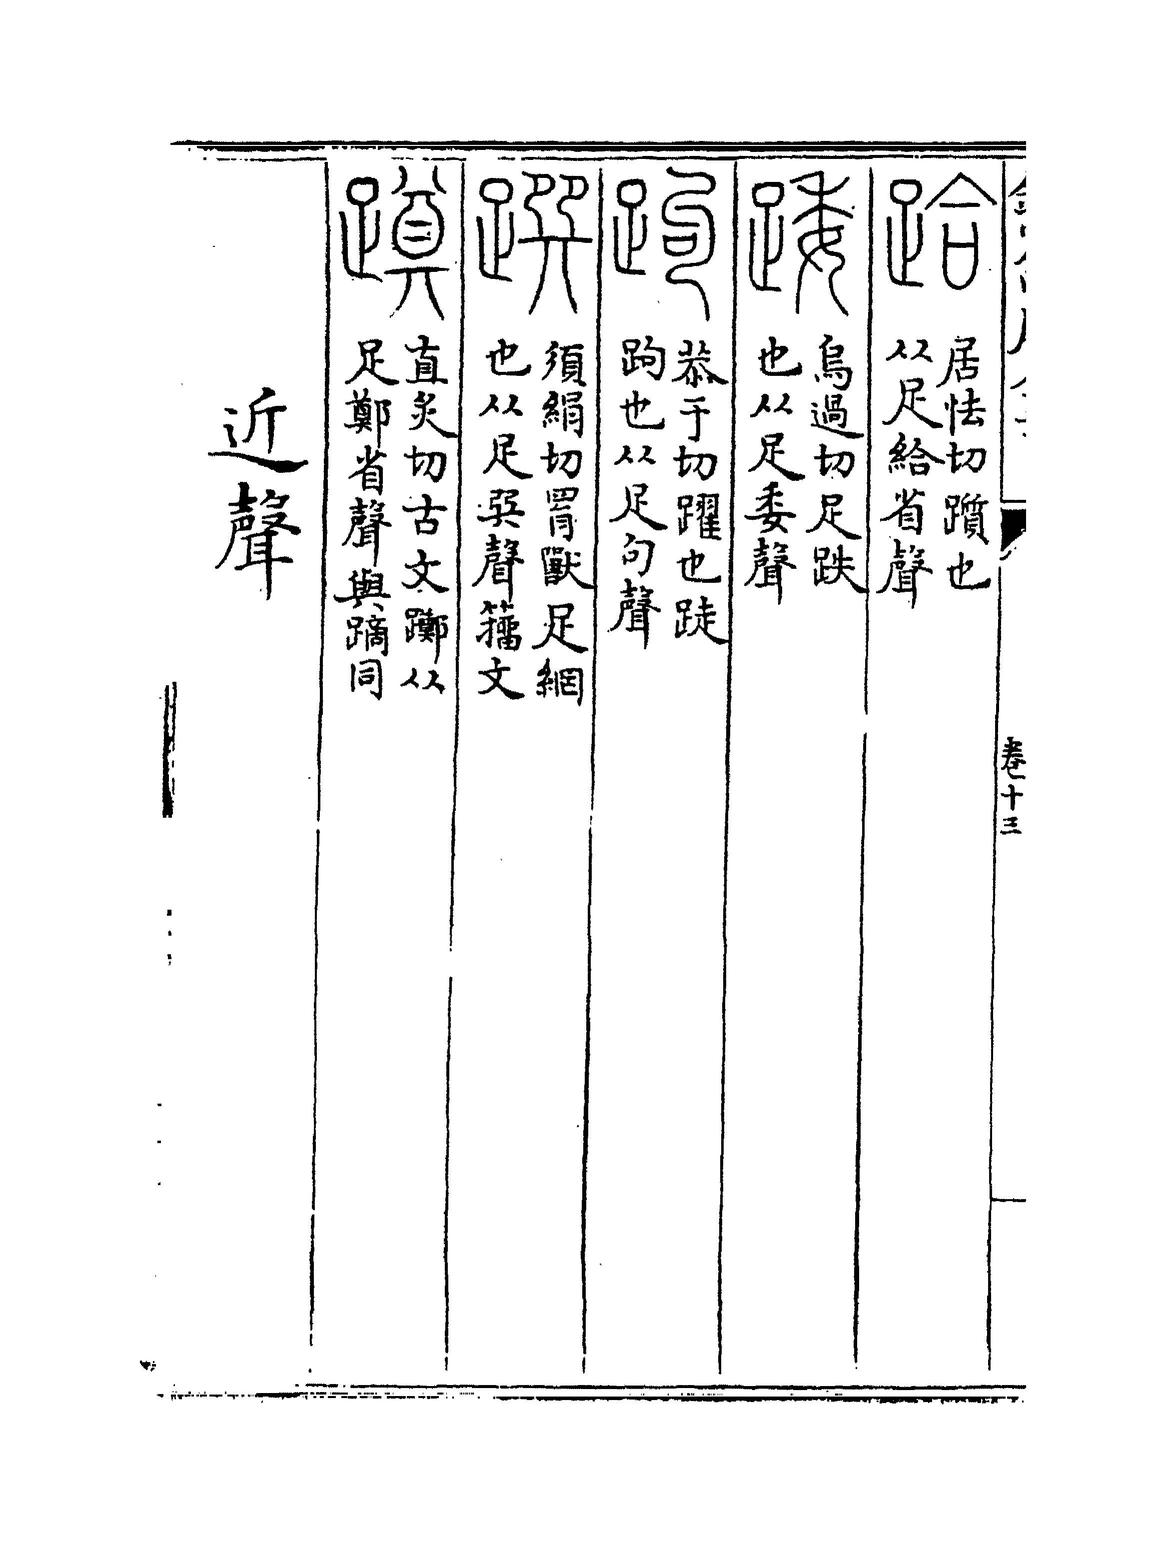 卷十三
跲
居怯切躓也
从足給省聲
踒
烏過切足跌
也从足委聲
跔
恭于切躍也跿
跔也从足句聲
䠣
須絹切罥獸足網
也从足巺聲籀文
直炙切古文躑从
足鄭省聲與蹢同
近聲